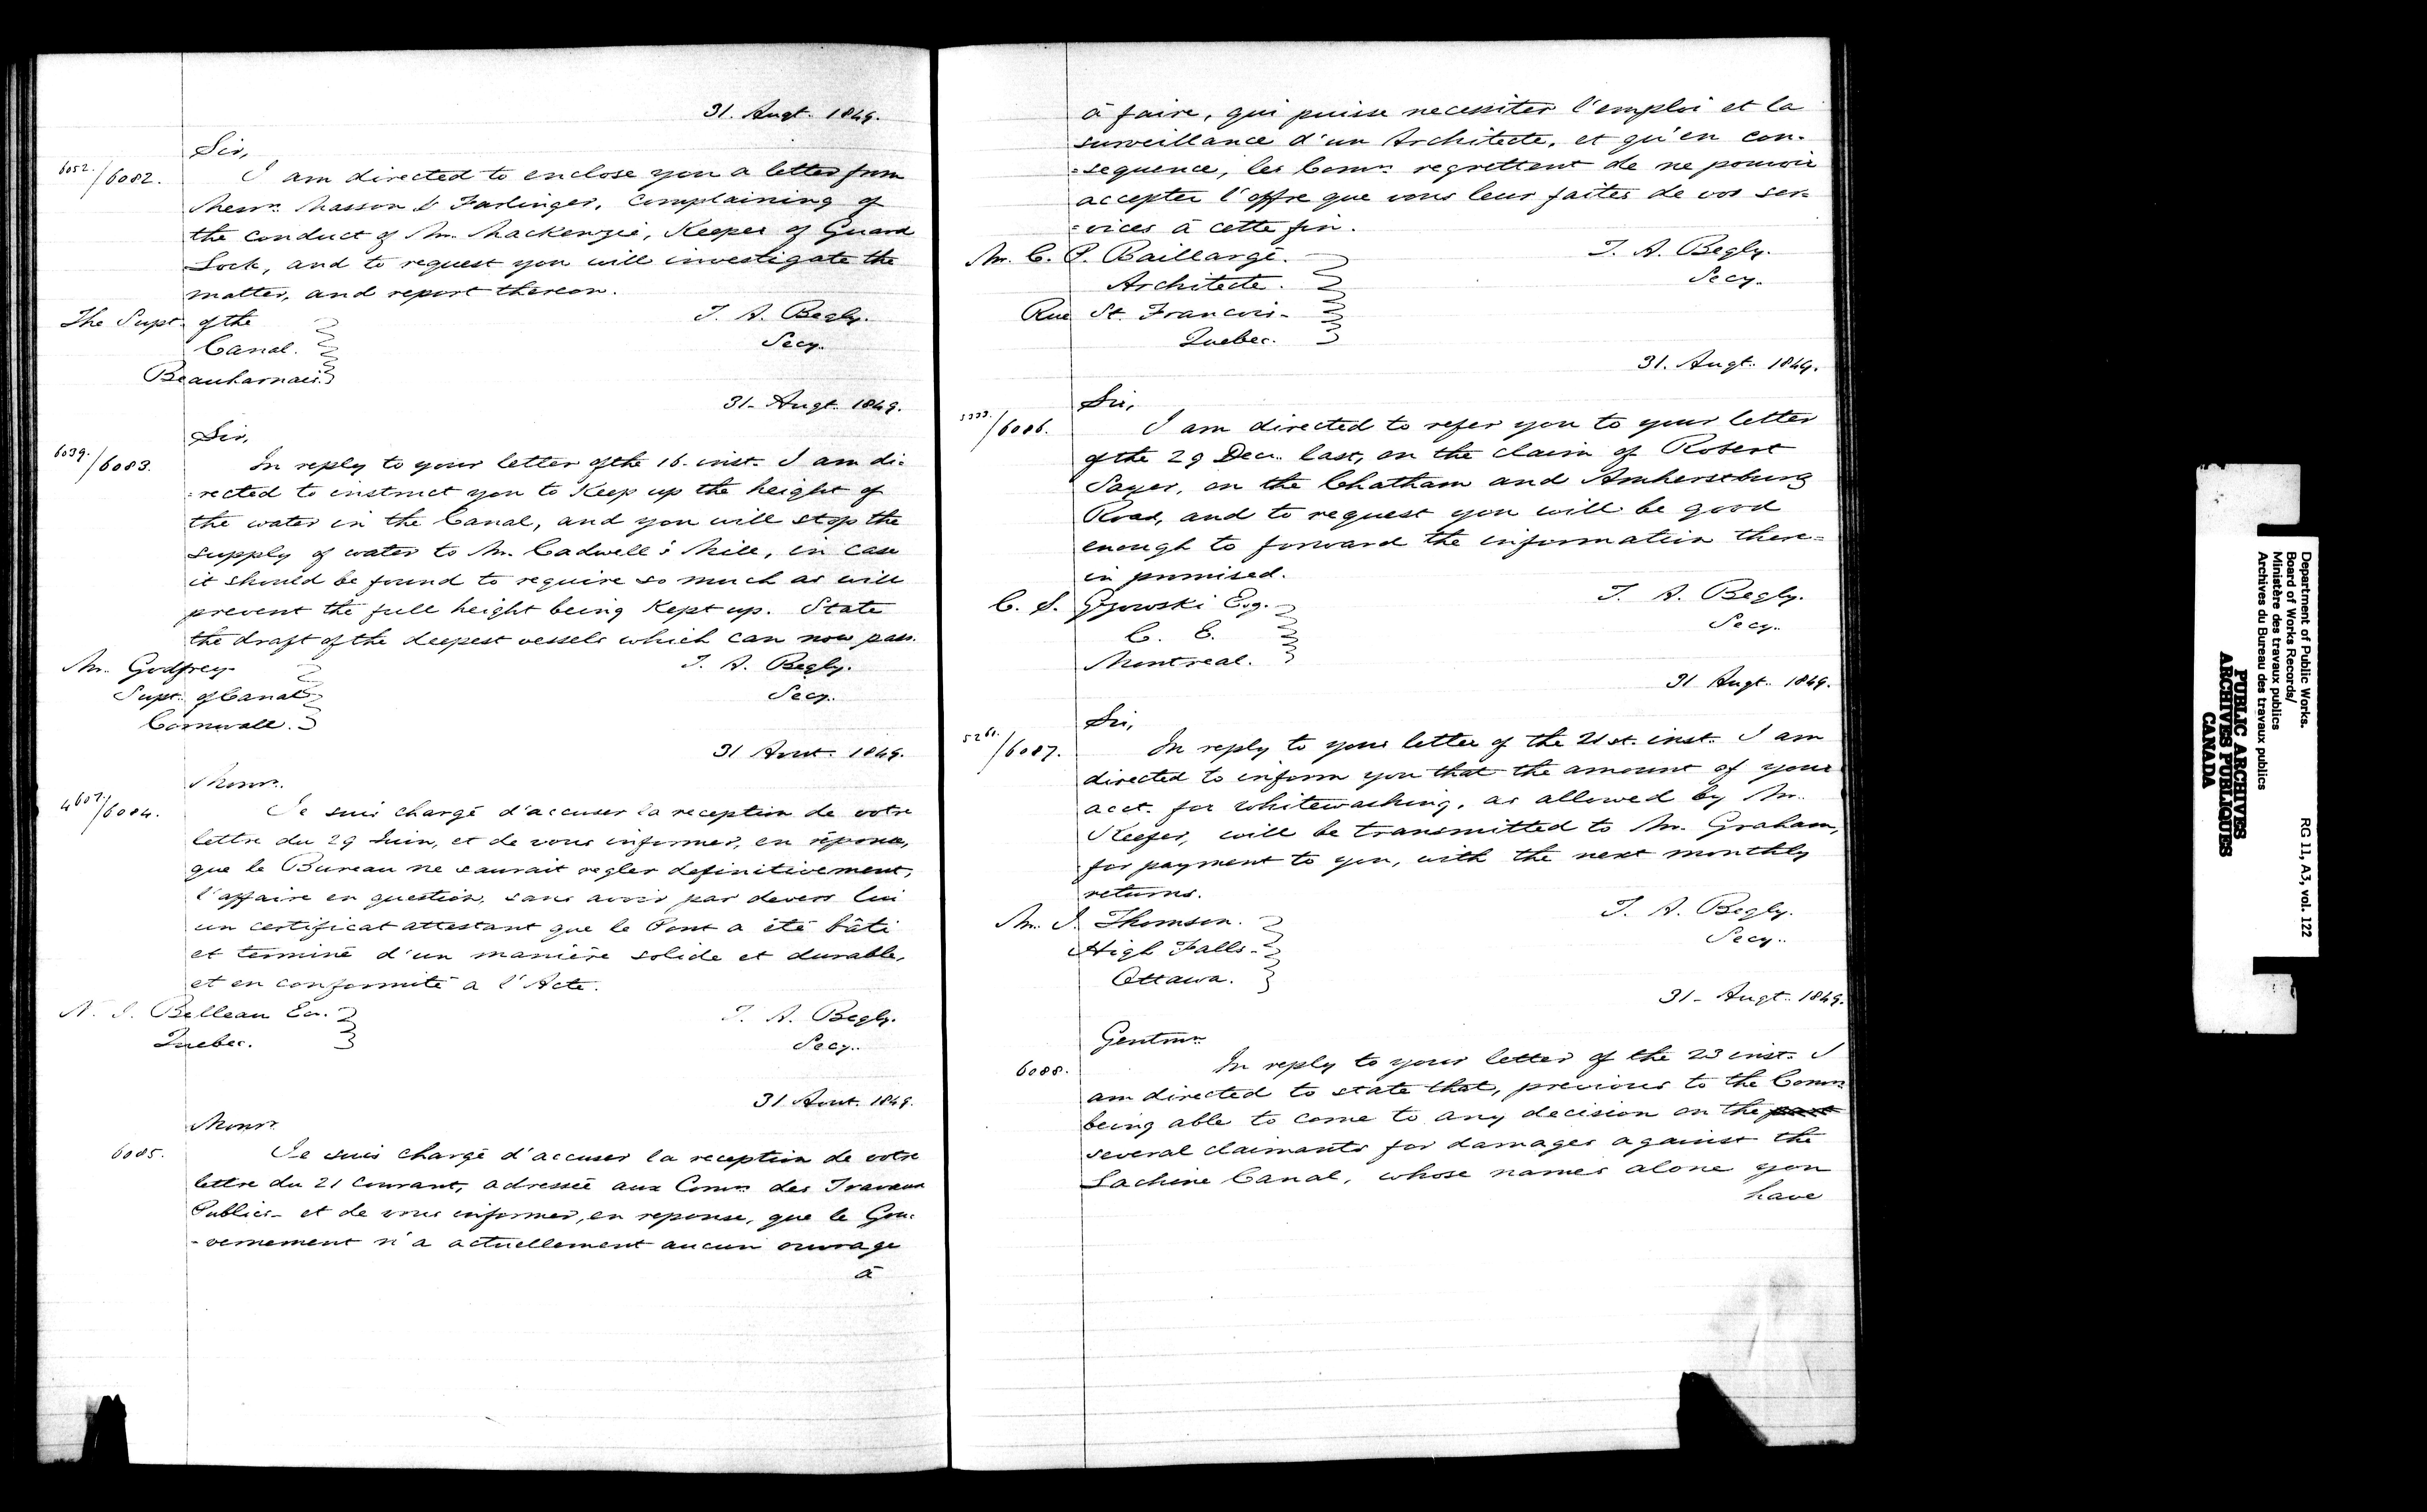 31. Augt. 1849.
Sir,
6052./6082. I am directed to enclose you a letter from
Messrs. Masson & Farlinger, complaining of
the conduct of Mr. Mackenzie, Keeper of Guard
Lock, and to request you will investigate the
matter, and report thereon.
The Supt. of the
Canal.
Beauharnais.
T. A. Begly.
Secy.
31. Augt. 1849.
Sir,
6039./6083. In reply to your letter of the 16. inst. I am di-
-rected to instruct you to Keep up the height of
the water in the Canal, and you will stop the
supply of water to Mr. Cadwell's Mill, in case
it should be found to require so much as will
prevent the full height being Kept up. State
the draft of the deepest vessels which can now pass.
Mr. Godfrey.
Supt. of Canal
Cornwall.
T. A. Begly.
Secy.
31 Aout. 1849.
Monsr.
4607./6084. Je suis chargé d'accuser la reception de votre
lettre du 29 Juin, et de vous informer, en réponse,
que le Bureau ne saurait regler definitivement,
l'affaire en question, sans avoir par devers lui
un certificat attestant que le Pont a été bâti
et terminé d'un manière solide et durable,
et en conformité a l'Acte.
N. J. Belleau Er.
Quebec.
T. A. Begly.
Secy.
31 Aout. 1849.
Monsr.
6085. Je suis chargé d'accuser la reception de votre
lettre du 21 Courant, adressée aux Comrs. des Travaux
Publics- et de vous informer, en reponse, que le Gou-
-vernement n'a actuellement aucun ouvrage
à
à faire, qui puisse necessiter l'emploi et la
surveillance d'un Architecte, et qu'en con-
-sequence, les Comrs. regrettent de ne pouvoir
accepter l'offre que vous leur faites de vos ser-
-vices à cette fin.
Mr. C. P. Baillargé.
Architecte.
Rue St. Francois-
Quebec.
T. A. Begly.
Secy.
31. Augt. 1849.
Sir,
5333./6086. I am directed to refer you to your letter
of the 29 Decr. last, on the claim of Robert
Sayer, on the Chatham and Amherstburg
Road, and to request you will be good
enough to forward the information there-
in promised.
C. S. Gzowski Esq.
C. E.
Montreal.
T. A. Begly.
Secy.
31 Augt. 1849.
Sir,
5261./6087. In reply to your letter of the 21st. inst. I am
directed to inform you that the amount of your
acct. for whitewashing, as allowed by Mr.
Keefer, will be transmitted to Mr. Graham,
for payment to you, with the next monthly
returns.
Mr. J. Thomson.
High Falls-
Ottawa.
T. A. Begly.
Secy.
31- Augt. 1849.
Gentmn.
6088. In reply to your letter of the 23 inst. I
am directed to state that, previous to the Comrs
being able to come to any decision on the part
several claimants for damages against the
Lachine Canal, whose names alone you
have
Department of Public Works.
Board of Works Records/
Ministère des travaux publics
Archives du Bureau des travaux publics
RG 11, A3, vol. 122
PUBLIC ARCHIVES
ARCHIVES PUBLIQUES
CANADA